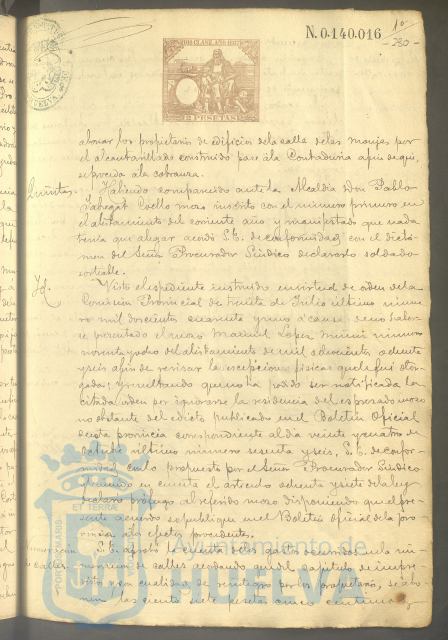 N. 0.140.016
10ª CLASE AÑO 1887
2 PESETAS
abonar los propietarios de edificios de la calle de las monjas por
el alcantarillado construido pase á la Contaduría á fin de que
se proceda á la cobranza.
Quintas Habiendo comparecido ante la Alcaldía Don Pablo
Coello mozo inscrito con el número primero en
el alistamiento del corriente año y manifestado que nada
tenía que alegar acordó S.E. de conformidad con el dicta-
men del Señor Procurador Síndico declararlo soldado
sorteable.
Id. Visto el expediente instruido en virtud de orden de la
Comisión Provincial de treinta de Julio último núme-
ro mil doscientos cuarenta y uno á causa de no haber-
se presentado el mozo Manuel López número
noventa y ocho del alistamiento de mil ochocientos ochenta
y seis á fin de revisar la excepción física que le fué otor-
gada; y resultando que no ha podido ser notificada la
citada orden por ignorarse la residencia del expresado mozo
no obstante del edicto publicado en el Boletín Oficial
de esta provincia correspondiente al día veinte y cuatro de
último número sesenta y seis, S.E. de confor-
midad con lo propuesto por el Señor Procurador Síndico
teniendo en cuenta el artículo ochenta y siete de la ley
declaró prófugo al referido mozo disponiendo que el pre-
sente acuerdo se publique en el Boletín oficial de la pro-
vincia á los efectos procedentes.
S.E. aprobó la cuenta de los gastos de la nu-
meración de calles acordando que del capítulo de impre-
vistos y en calidad de reintegro por los propietarios, se abo-
nen las ciento siete pesetas cinco céntimos
Ayuntamiento de
HUELVA